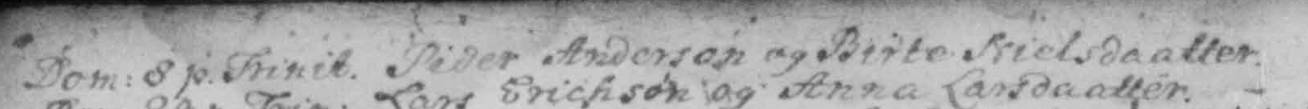 Dom: 8 p. Trinit. Peder Anderson og Birte Nielsdaatter.
Lars Erichsøn og Anna Larsdaatter. -